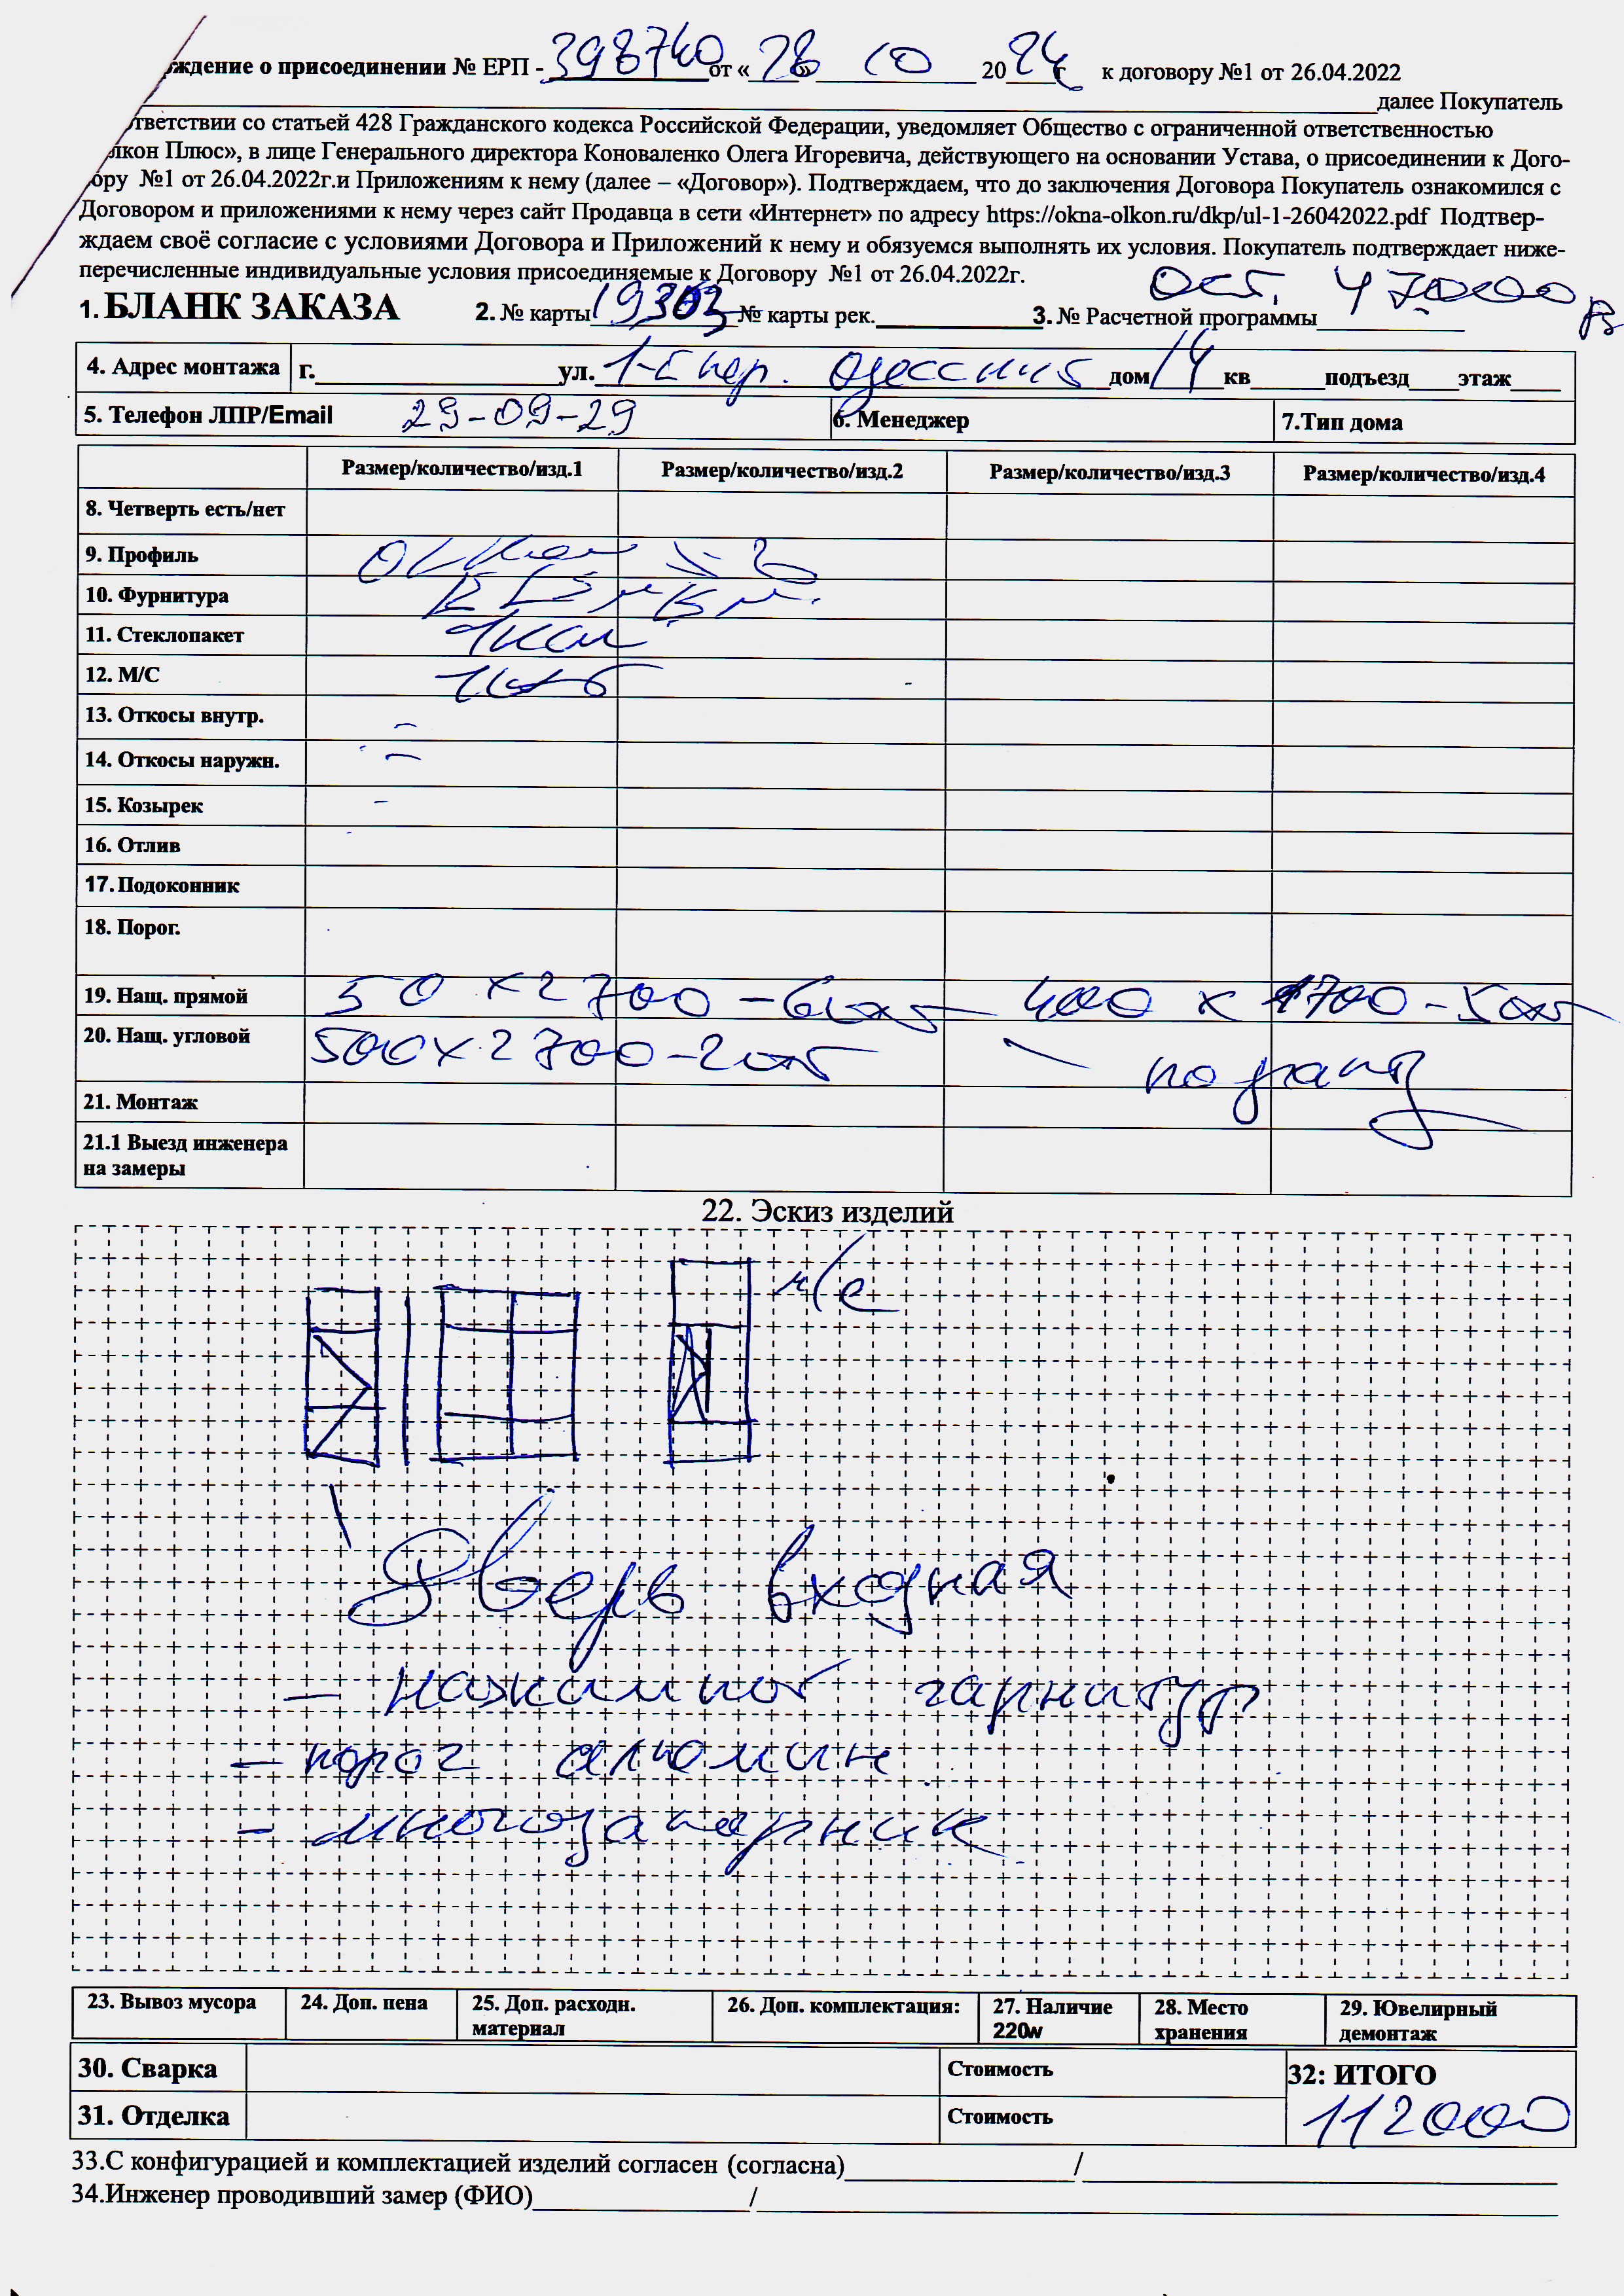 рждение о присоединении № ЕРП - 398740 от «28» 10 2024 г к договору №1 от 26.04.2022
далее Покупатель
тветствии со статьей 428 Гражданского кодекса Российской Федерации, уведомляет Общество с ограниченной ответственностью
лкон Плюс», в лице Генерального директора Коноваленко Олега Игоревича, действующего на основании Устава, о присоединении к Дого-
ору №1 от 26.04.2022г.и Приложениям к нему (далее – «Договор»). Подтверждаем, что до заключения Договора Покупатель ознакомился с
Договором и приложениями к нему через сайт Продавца в сети «Интернет» по адресу https://okna-olkon.ru/dkp/ul-1-26042022.pdf Подтвер-
ждаем своё согласие с условиями Договора и Приложений к нему и обязуемся выполнять их условия. Покупатель подтверждает ниже-
перечисленные индивидуальные условия присоединяемые к Договору №1 от 26.04.2022г.
ост. 47000 р
1. БЛАНК ЗАКАЗА 2. № карты 19303 № карты рек. 3. № Расчетной программы
4. Адрес монтажа г. ул. 1-й пер. Одесский дом 14 кв подъезд этаж
5. Телефон ЛПР/Email 29-09-29 6. Менеджер 7.Тип дома
Размер/количество/изд.1 Размер/количество/изд.2 Размер/количество/изд.3 Размер/количество/изд.4
8. Четверть есть/нет
9. Профиль
10. Фурнитура
11. Стеклопакет
12. М/С
13. Откосы внутр. –
14. Откосы наружн. –
15. Козырек -
16. Отлив
17. Подоконник
18. Порог.
19. Нащ. прямой 50 х 2700 – 6 шт 400 х 1700 – 5 шт
20. Нащ. угловой 500 х 2700 – 2 шт
21. Монтаж
21.1 Выезд инженера
на замеры
22. Эскиз изделий
м/с
Дверь входная
– нажимной гарнитур
– порог алюмин.
– многозапорник
23. Вывоз мусора 24. Доп. пена 25. Доп. расходн. материал 26. Доп. комплектация: 27. Наличие 220w 28. Место хранения 29. Ювелирный демонтаж
30. Сварка Стоимость 32: ИТОГО
31. Отделка Стоимость 112000
33.С конфигурацией и комплектацией изделий согласен (согласна) /
34.Инженер проводивший замер (ФИО) /